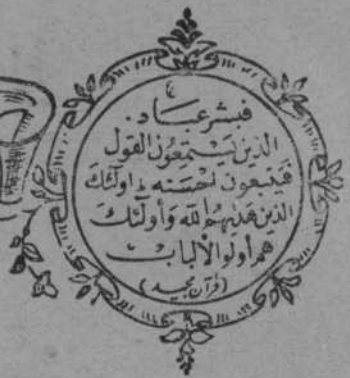 فبشر عباد.
الذین یستمعون القول
فیتبعون احسنه اولئك
الذین هدیهم الله و أولئك
هم أولوا الألباب
(قرآن مجید)